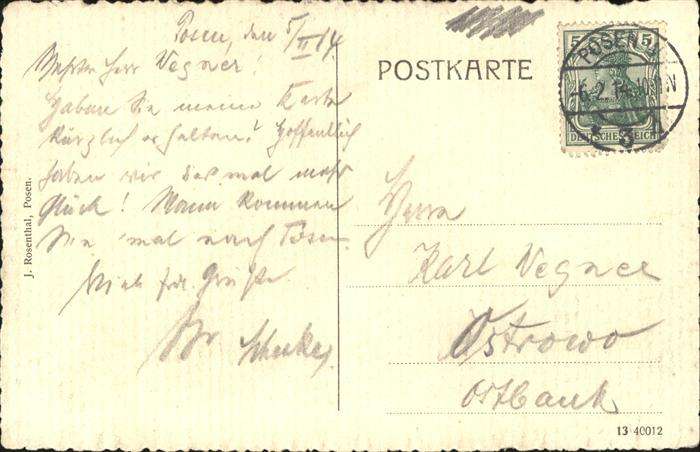 Posen, den 5/II 14.
Herr Wegner!
Haben Sie meine Karte
kürzlich erhalten? Hoffentlich
haben wir diesmal mehr
Glück! Wann kommen
Sie 'mal nach Posen.
Viele frdl. Grüße
Ihr
J. Rosenthal, Posen.
POSTKARTE
5 5
DEUTSCHES REICH
POSEN
6.2.14
N
3
Herrn
Karl Wegner
Ostrowo
Ostbank
13 40012